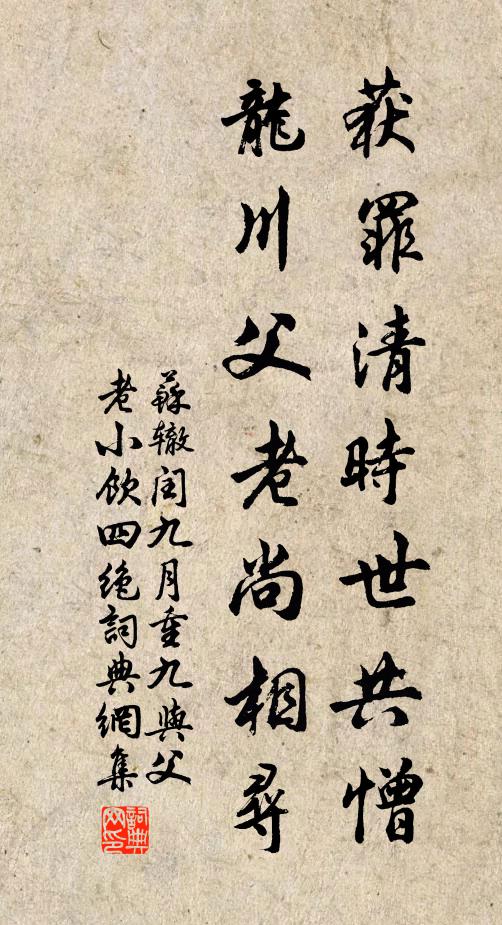 获罪清時世共憎
龍川父老尚相尋
蘇辙闰九月重九與父
老小飲四绝詞典網集
詞典
网印